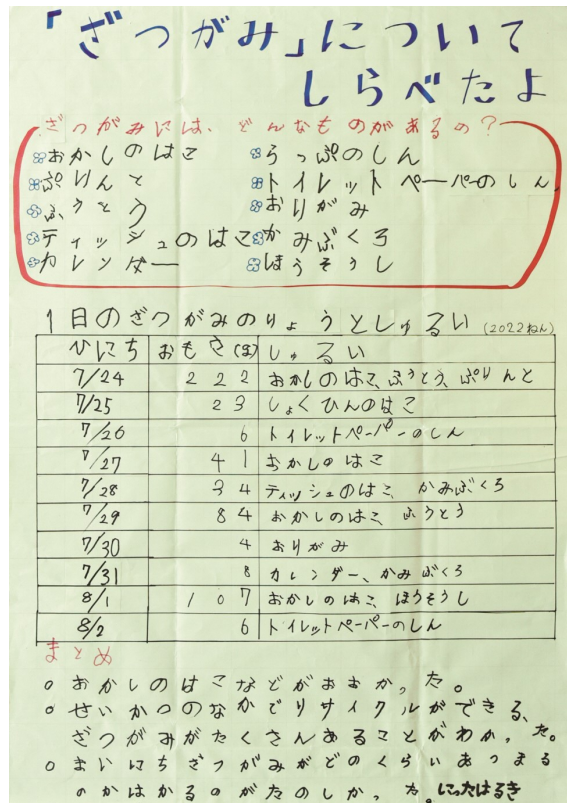 「ざつがみ」について
しらべたよ
ざつがみには、どんなものがあるの?
おかしのはこ らっぷのしん
ぷりんと トイレットペーパーのしん
ふうとう おりがみ
ティッシュのはこ かみぶくろ
カレンダー ほうそうし
1日のざつがみのりょうとしゅるい(2022ねん)
ひにち おもさ(g) しゅるい
7/24 222 おかしのはこ、ふうとう、ぷりんと
7/25 23 しょくひんのはこ
7/26 6 トイレットペーパーのしん
7/27 41 おかしのはこ
7/28 34 ティッシュのはこ、かみぶくろ
7/29 84 おかしのはこ、ふうとう
7/30 4 おりがみ
7/31 8 カレンダー、かみぶくろ
8/1 107 おかしのはこ、ほうそうし
8/2 6 トイレットペーパーのしん
まとめ
○おかしのはこなどがおおかった。
○せいかつのなかでリサイクルができる、
ざつがみがたくさんあることがわかった。
○まいにちざつがみがどのくらいあつまる
のかはかるのがたのしかった。にったはるき